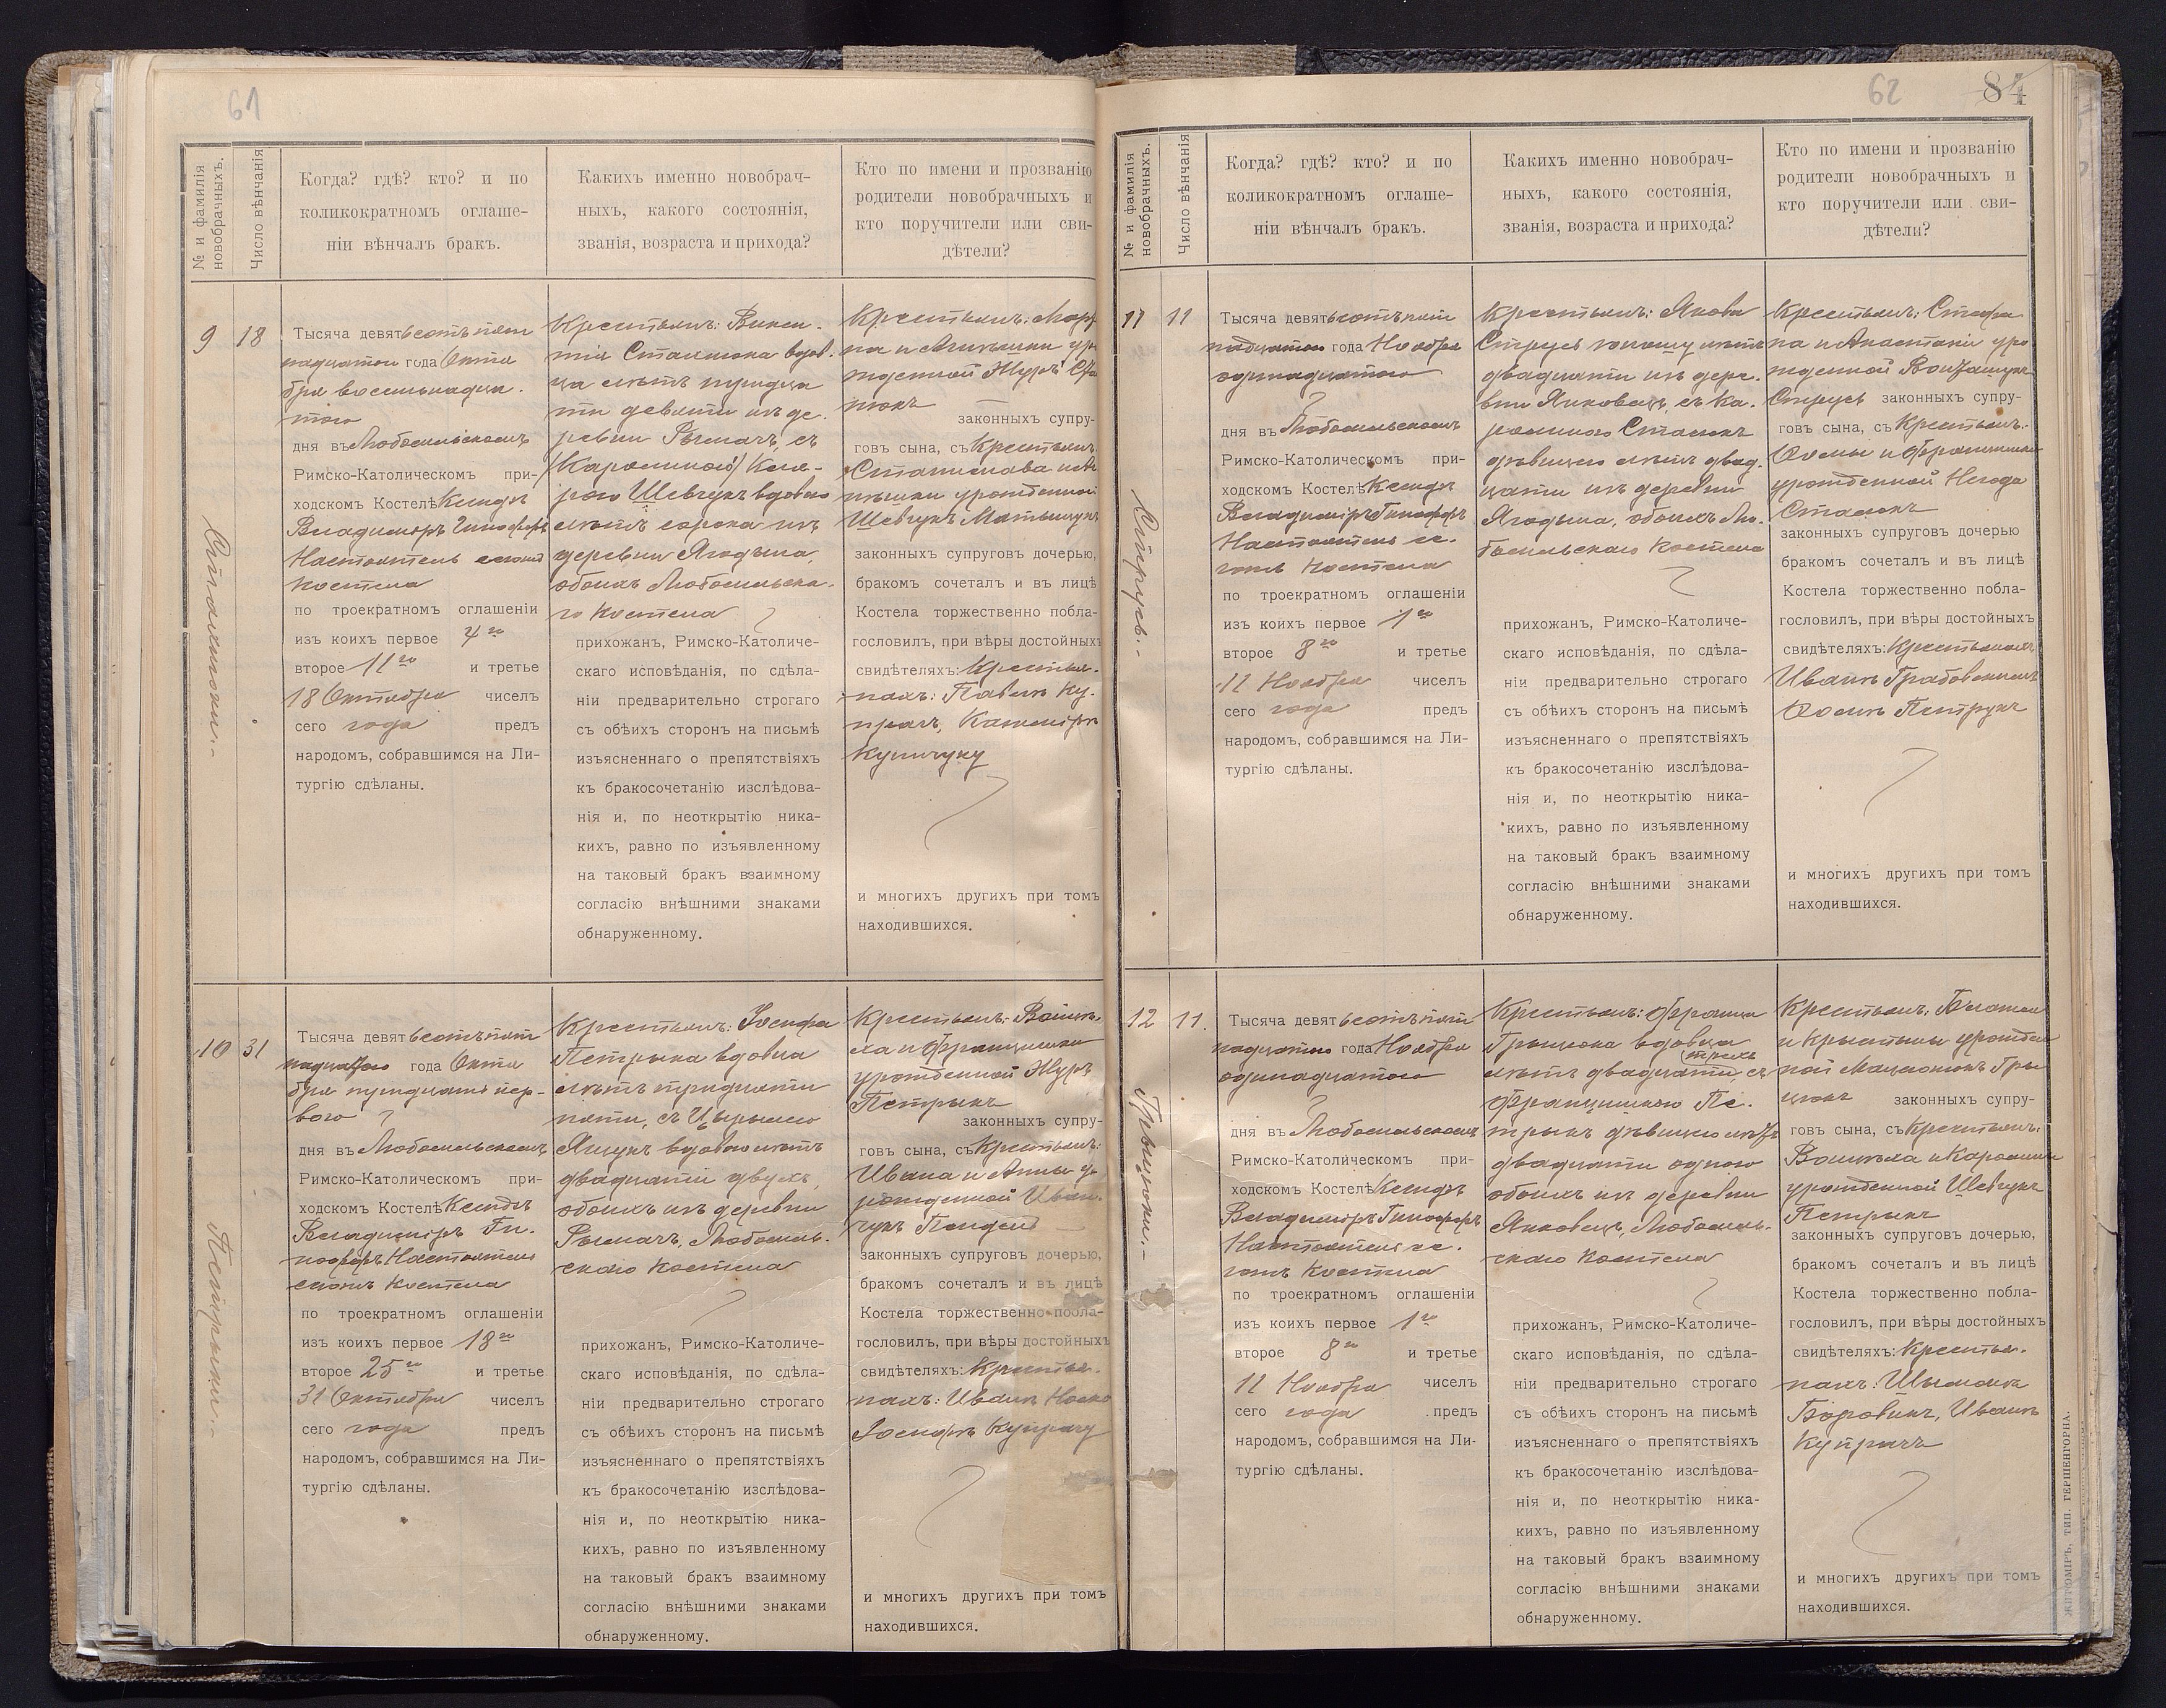 61
№ и фамилія новобрачныхъ.
Число вѣнчанія
Когда? гдѣ? кто? и по
коликократномъ оглаше-
ніи вѣнчалъ бракъ.
Какихъ именно новобрач-
ныхъ, какого состоянія,
званія, возраста и прихода?
Кто по имени и прозванію
родители новобрачныхъ и
кто поручители или сви-
дѣтели?
9
18
Тысяча девятьсотъ пят
надцатого года Октя
бря восемнадца-
того
дня въ Любомльскомъ
Римско-Католическомъ при-
ходскомъ Костелѣ Ксендзъ
Владиміръ
Настоятель сегожъ
Костела
по троекратномъ оглашеніи
изъ коихъ первое 4го
второе 11го и третье
18 Октября чиселъ
сего года предъ
народомъ, собравшимся на Ли-
тургію сдѣланы.
Крестьянъ: Викен-
тія Сталиока вдов-
ца лѣтъ тридца
ти девяти изъ де-
ревни Рымачъ, съ
(Каролиной)
Шевчукъ вдовою
лѣтъ сорока изъ
деревни Ягодына,
обоихъ Любомльска-
го Костела
прихожанъ, Римско-Католиче-
скаго исповѣданія, по сдѣла-
ніи предварительно строгаго
съ обѣихъ сторонъ на письмѣ
изъясненнаго о препятствіяхъ
къ бракосочетанію изслѣдова-
нія и, по неоткрытію ника-
кихъ, равно по изъявленному
на таковый бракъ взаимному
согласію внѣшними знаками
обнаруженному.
Крестьянъ:
на и Агнешки уро
жденной Журъ
законныхъ супру-
говъ сына, съ Крестьянъ
Станислава и
урожденной
Шевчукъ
законныхъ супруговъ дочерью,
бракомъ сочеталъ и въ лицѣ
Костела торжественно побла-
гословилъ, при вѣры достойныхъ
свидѣтеляхъ: Крестья-
нахъ: Павелъ Ку-
прачъ, Казиміръ
и многихъ другихъ при томъ
находившихся.
10
31
Петрыки.-
Тысяча девятьсотъ пят
надцатого года Октя
бря тридцать пер-
вого
дня въ Любомльскомъ
Римско-Католическомъ при-
ходскомъ Костелѣ Ксендзъ
Владиміръ
Настоятель
сегожъ Костела
по троекратномъ оглашеніи
изъ коихъ первое 18го
второе 25го и третье
31 Октября чиселъ
сего года предъ
народомъ, собравшимся на Ли-
тургію сдѣланы.
Крестьянъ: Іосифа
Петрыка вдовца
лѣтъ тридцати
пяти, съ
вдовою лѣтъ
двадцати двухъ,
обоихъ изъ деревни
Рымачъ, Любомль-
скаго Костела
прихожанъ, Римско-Католиче-
скаго исповѣданія, по сдѣла-
ніи предварительно строгаго
съ обѣихъ сторонъ на письмѣ
изъясненнаго о препятствіяхъ
къ бракосочетанію изслѣдова-
нія и, по неоткрытію ника-
кихъ, равно по изъявленному
на таковый бракъ взаимному
согласію внѣшними знаками
обнаруженному.
Крестьянъ: Войтѣ-
ха и Францишки
урожденной Журъ
Петрыкъ
законныхъ супру-
говъ сына, съ Крестьянъ:
Ивана и Анны у-
рожденной Иван-
чукъ
законныхъ супруговъ дочерью,
бракомъ сочеталъ и въ лицѣ
Костела торжественно побла-
гословилъ, при вѣры достойныхъ
свидѣтеляхъ: Крестья-
нахъ: Иванъ
Іосифъ Купрачу
и многихъ другихъ при томъ
находившихся.
62
84
№ и фамилія новобрачныхъ.
Число вѣнчанія
Когда? гдѣ? кто? и по
коликократномъ оглаше-
ніи вѣнчалъ бракъ.
Какихъ именно новобрач-
ныхъ, какого состоянія,
званія, возраста и прихода?
Кто по имени и прозванію
родители новобрачныхъ и
кто поручители или сви-
дѣтели?
11
11
Струсь.-
Тысяча девятьсотъ пят
надцатого года Ноября
одинадцатого
дня въ Любомльскомъ
Римско-Католическомъ при-
ходскомъ Костелѣ Ксендзъ
Владиміръ
Настоятель се-
гожъ Костела
по троекратномъ оглашеніи
изъ коихъ первое 1го
второе 8го и третье
11 Ноября чиселъ
сего года предъ
народомъ, собравшимся на Ли-
тургію сдѣланы.
Крестьянъ: Якова
Струсь юношу лѣтъ
двадцати изъ дере-
вни Янковецъ, съ Ка-
ролиною
дѣвицею лѣтъ двад-
цати изъ деревни
Ягодына, обоихъ Лю-
бомльскаго Костела
прихожанъ, Римско-Католиче-
скаго исповѣданія, по сдѣла-
ніи предварительно строгаго
съ обѣихъ сторонъ на письмѣ
изъясненнаго о препятствіяхъ
къ бракосочетанію изслѣдова-
нія и, по неоткрытію ника-
кихъ, равно по изъявленному
на таковый бракъ взаимному
согласію внѣшними знаками
обнаруженному.
Крестьянъ: Стефа
на и Анастазіи уро
жденной
Струсь законныхъ супру-
говъ сына, съ Крестьянъ:
и Францишки
урожденной
законныхъ супруговъ дочерью
бракомъ сочеталъ и въ лицѣ
Костела торжественно побла-
гословилъ, при вѣры достойныхъ
свидѣтеляхъ: Крестьянахъ
Иванъ Грабовскимъ
Петрукъ
и многихъ другихъ при томъ
находившихся.
12
11.
Грыцюки.-
Тысяча девятьсотъ пят
надцатого года Ноября
одинадцатого
дня въ Любомльскомъ
Римско-Католическомъ при-
ходскомъ Костелѣ Ксендзъ
Владиміръ
Настоятель се-
гожъ Костела
по троекратномъ оглашеніи
изъ коихъ первое 1го
второе 8го и третье
11 Ноября чиселъ
сего года предъ
народомъ, собравшимся на Ли-
тургію сдѣланы.
Крестьянъ: Франца
Грыцюка вдовца
лѣтъ двадцати (трехъ съ
Францишкою Пе-
трыкъ дѣвицею лѣтъ
двадцати одного
обоихъ изъ деревни
Янковецъ, Любомль-
скаго Костела
прихожанъ, Римско-Католиче-
скаго исповѣданія, по сдѣла-
ніи предварительно строгаго
съ обѣихъ сторонъ на письмѣ
изъясненнаго о препятствіяхъ
къ бракосочетанію изслѣдова-
нія и, по неоткрытію ника-
кихъ, равно по изъявленному
на таковый бракъ взаимному
согласію внѣшними знаками
обнаруженному.
Крестьянъ:
и Крыстыны урожден
ной Гры
цюкъ законныхъ супру-
говъ сына, съ Крестьянъ:
Войтѣха и Каролины
урожденной Шевчукъ
Петрыкъ
законныхъ супруговъ дочерью,
бракомъ сочеталъ и въ лицѣ
Костела торжественно побла-
гословилъ, при вѣры достойныхъ
свидѣтеляхъ: Крестья-
нахъ: Шымонъ
Боровикъ, Иванъ
Купрачъ
и многихъ другихъ при томъ
находившихся.
ЖИТОМІРЪ, ТИП. ГЕРШЕНГОРНА.